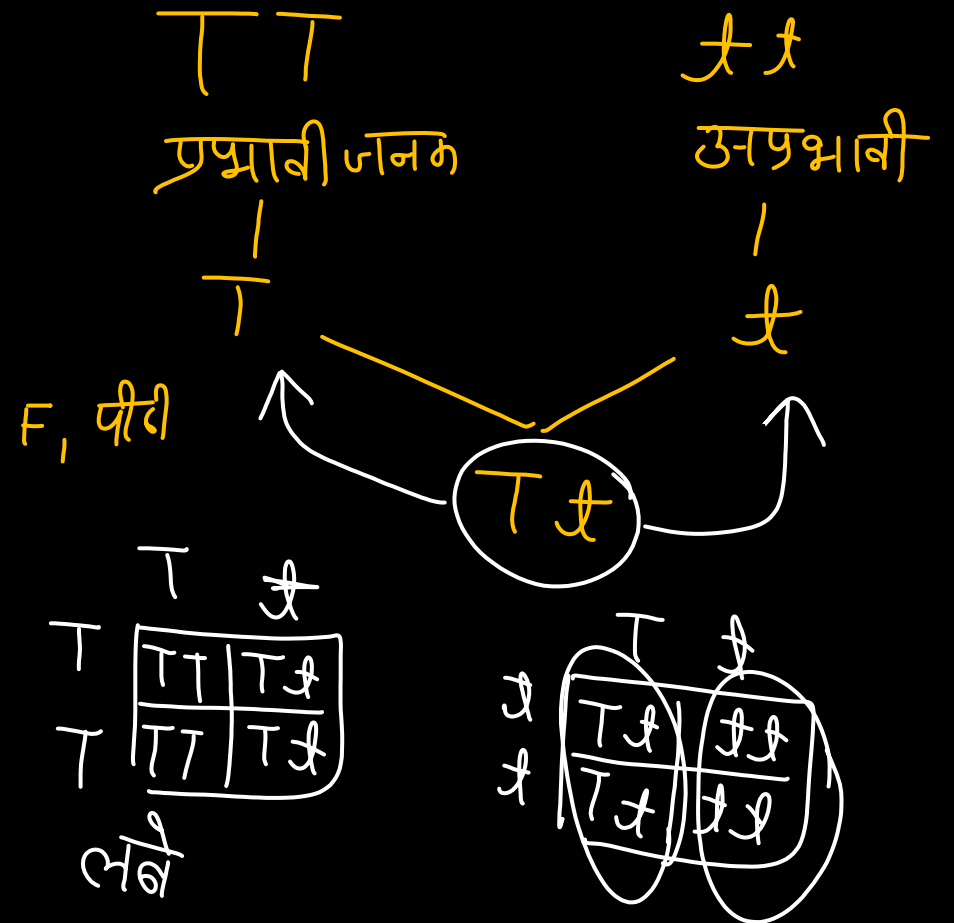 TT tt
प्रभावी जनक अप्रभावी
T t
F₁ पीढी
Tt
T t
T TT Tt
T TT Tt
लंबे
T t
t Tt tt
t Tt tt